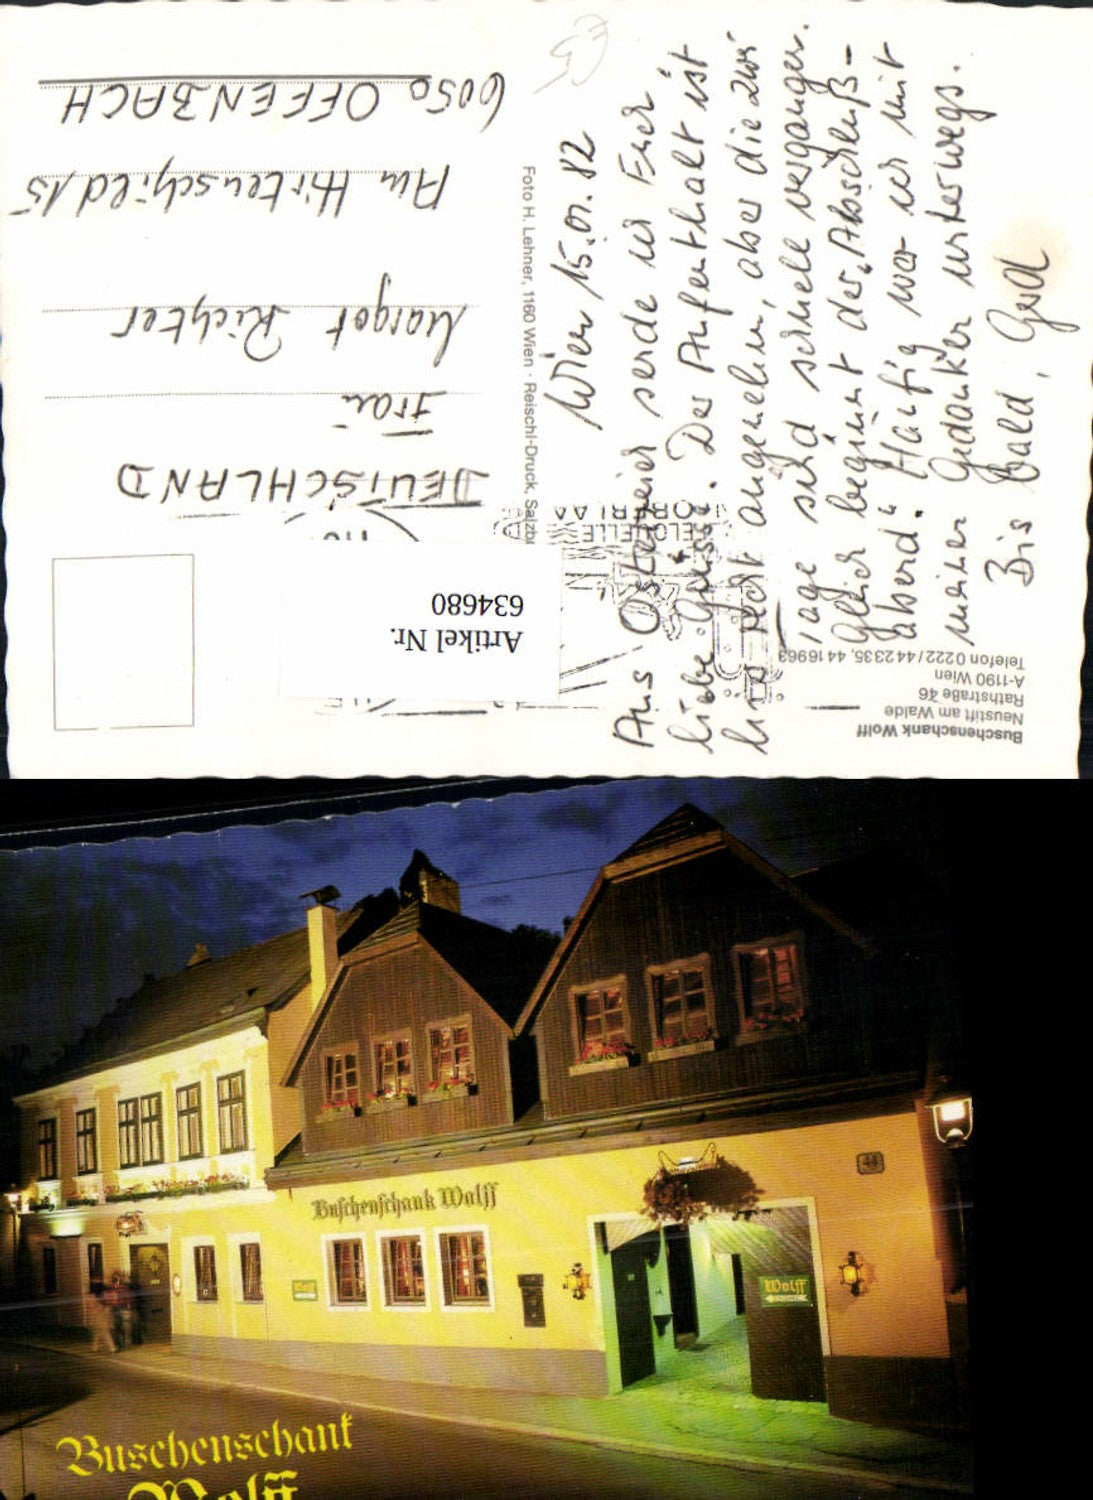 Wien 15.01.82
Aus Österreich sende ich Euch
liebe Grüsse. Der Aufenthalt ist
hier recht angenehm, aber die zwei
Tage sind schnell vergangen.
Gleich beginnt der „Abschluß-
abend“. Häufig war ich mit
meinen Gedanken unterwegs.
Bis bald, Gerd
DEUTSCHLAND
Frau
Margot Richter
Am Hirtenschild 15
6050 OFFENBACH
Foto H. Lehner, 1160 Wien · Reischl-Druck, Salzbu
Buschenschank Wolff
Neustift am Walde
Rathstraße 46
A-1190 Wien
Telefon 0 222 / 44 2335, 44 16963
Artikel Nr.
634680
Buschenschank Wolff
44
Wolff
Wolff
Buschenschank
Wolff